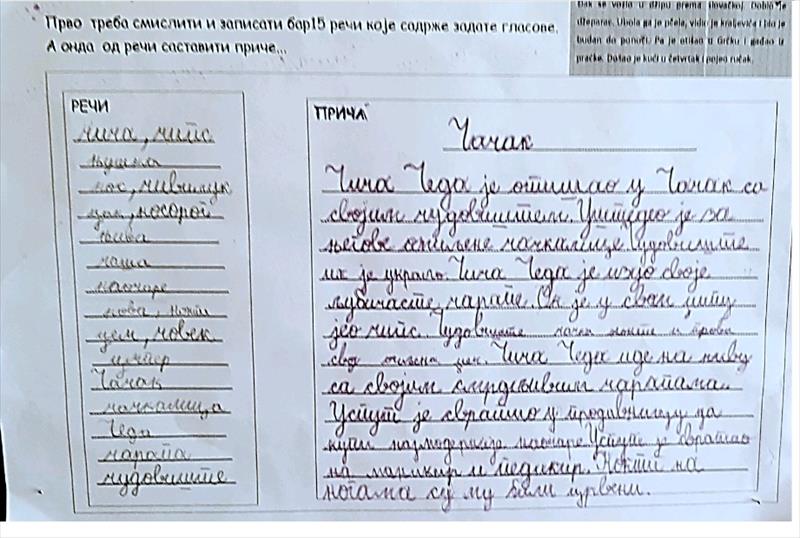 Прво треба смислити и записати бар15 речи које садрже задате гласове.
А онда од речи саставити приче...
Dak se vozio u džipu prema Slovačkoj. Dobio je
džeparac. Ubola ga je pčela, vidio je kraljevića i bio je
budan do ponoći. Pa je otišao u Grčku i gađao iz
praćke. Došao je kući u četvrtak i pojeo ručak.
РЕЧИ
чича, чипс
њушка
нос, чивилук
џак, носорог
њива
чаша
наочаре
нова, нокти
џем, човек
џемпер
Чачак
чачкалица
Чеда
чарапа
чудовиште
ПРИЧА
Чачак
Чича Чеда је отишао у Чачак са
својим чудовиштем. Уштедео је за
његове омиљене чачкалице. Чудовиште
их је украло. Чича Чеда је имао своје
љубичасте чарапе. Он је у свом џипу
јео чипс. Чудовиште чачка нокте и проба
свој омиљени џем. Чича Чеда иде на њиву
са својим смрдљивим чарапама.
Успут је свратио у продавницу да
купи најмодерније наочаре. Успут је свратио
на маникир и педикир. Нокти на
ногама су му били црвени.